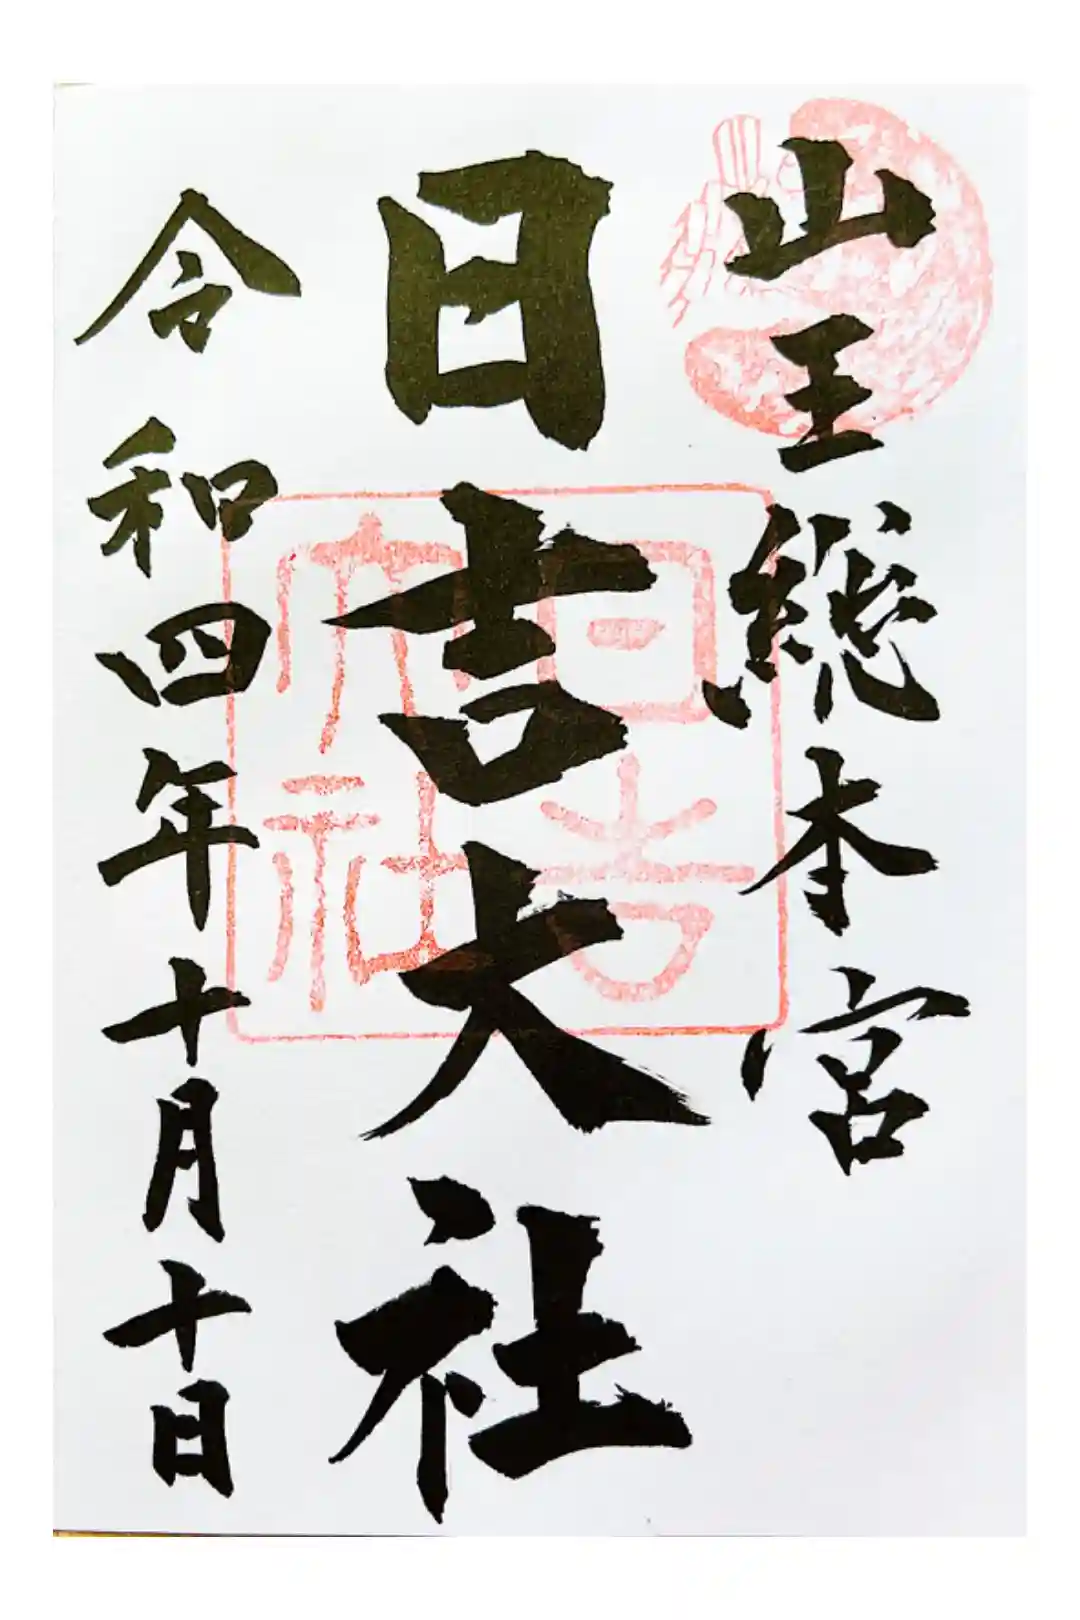 山王総本宮
日吉大社
日吉大社
令和四年十月十日